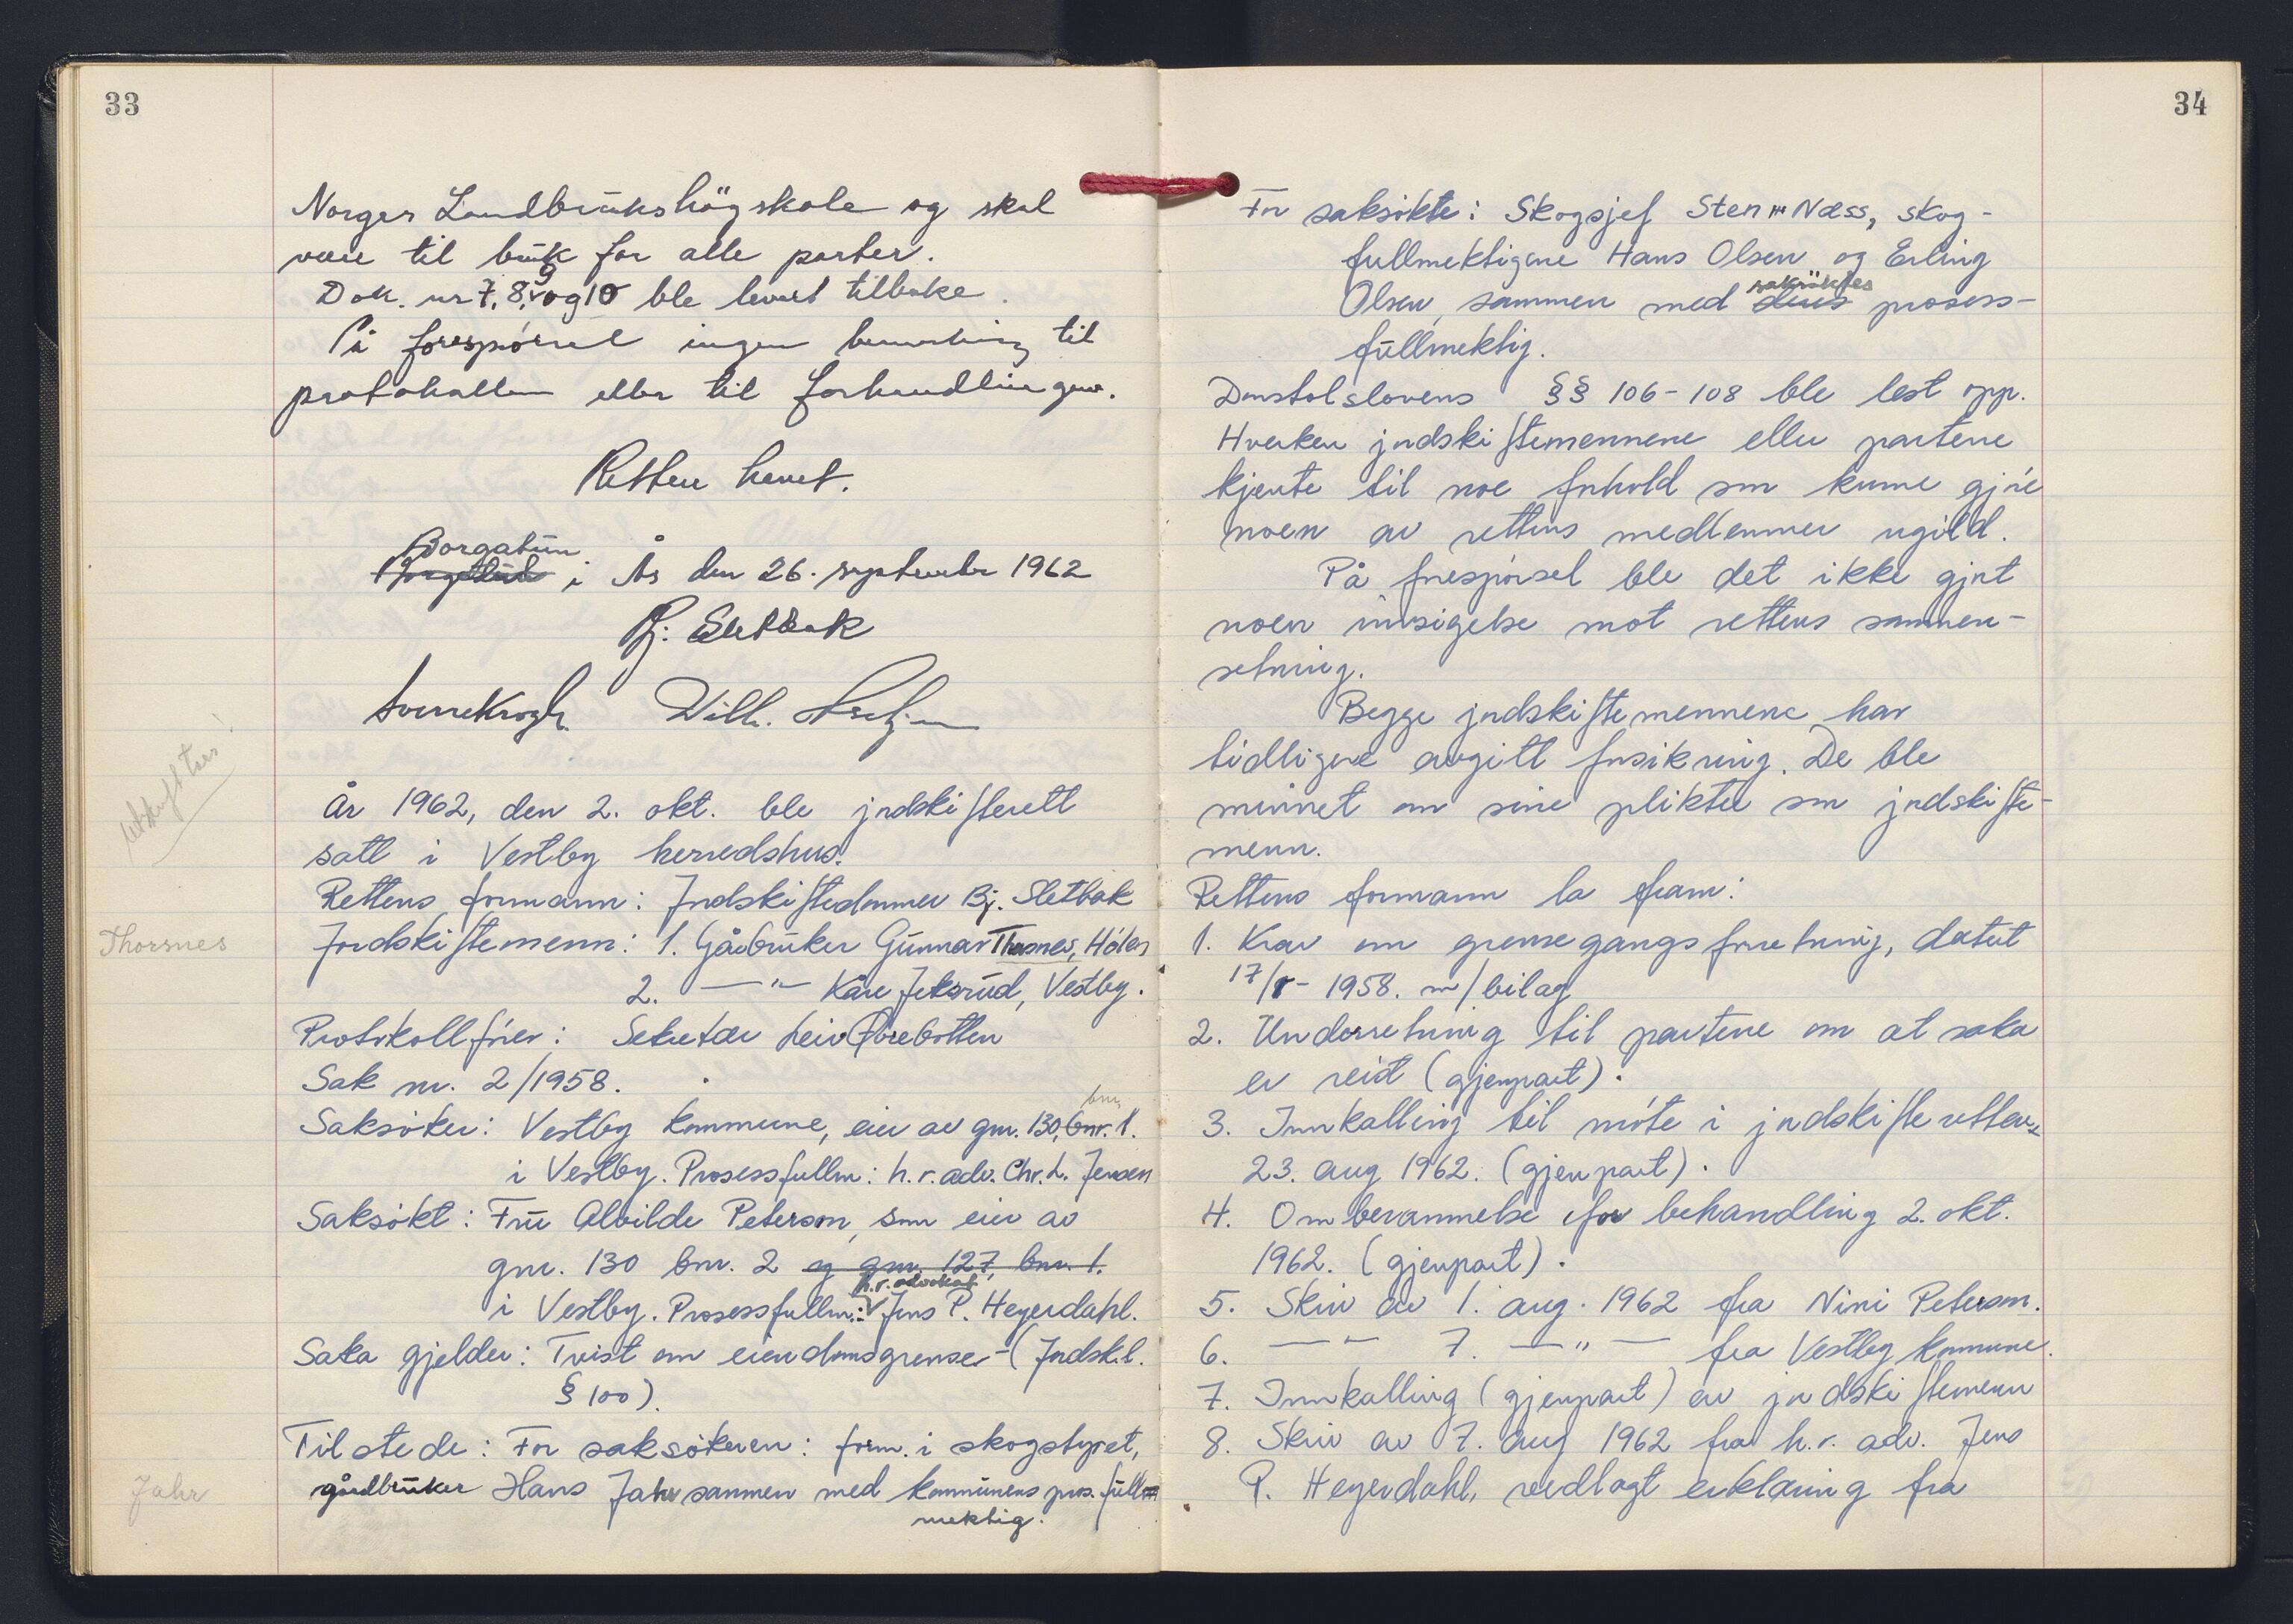 33
Norges Landbrukshögskole og skal
være til bruk for alle parter.
Dok. nr 7, 8, 9 og 10 ble levert tilbake.
På forespørsel ingen bemerkning til
protokollen eller til forhandlingene.
Retten hevet.
Borgatun
i Ås den 26. september 1962
Bj. Sletbak
Sverre Krogh Wilh.
År 1962, den 2. okt. ble jordskifterett
satt i Vestby herredshus.
Rettens formann: Jordskiftedommer Bj. Sletbak
Thorsnes
Jordskiftemenn: 1. Gårbruker Gunnar Thorsnes, Hölen
2. —"— Kåre Jeksrud, Vestby.
Protokollförer: Sekretær Leiv
Sak nr. 2/1958.
bnr.
Saksöker: Vestby kommune, eier av gnr. 130, bnr. 1.
i Vestby. Prosessfullm: h.r. adv. Chr. L. Jensen
Saksökt: Fru Alvilde Peterson, som eier av
gnr. 130 bnr. 2 og gnr. 127, bnr. 1.
h.r. advokat
i Vestby. Prosessfullm: Jens P. Heyerdahl.
Saka gjelder: Tvist om eiendomsgrense - (Jordsk.l.
§ 100).
Tilstede: For saksökeren: form. i skogstyret,
Jahr
gårdbruker Hans Jahr sammen med kommunens pros. full-
mektig.
34
For saksökte: Skogsjef Sten Næss, skog-
fullmektigene Hans Olsen og Erling
saksöktes
Olsen, sammen med deres prosess-
fullmektig.
Domstolslovens §§ 106-108 ble lest opp.
Hverken jordskiftemennene eller partene
kjente til noe forhold som kunne gjöre
noen av rettens medlemmer ugild.
På forespörsel ble det ikke gjort
noen innsigelse mot rettens sammen-
setning.
Begge jordskiftemennene har
tidligere avgitt forsikring. De ble
minnet om sine plikter som jordskifte-
menn.
Rettens formann la fram:
1. Krav om grensegangsforretning, datert
17/8 - 1958. m/bilag
2. Underretning til partene om at saka
er reist (gjenpart).
3. Innkalling til möte i jordskifteretten
23. aug 1962. (gjenpart).
4. Omberammelse for behandling 2. okt.
1962. (gjenpart).
5. Skriv av 1. aug. 1962 fra Nini Peterson.
6. —"— 7. —"— fra Vestby kommune.
7. Innkalling (gjenpart) av jordskiftemenn
8. Skriv av 7. aug 1962 fra h.r. adv. Jens
P. Heyerdahl, vedlagt erklæring fra